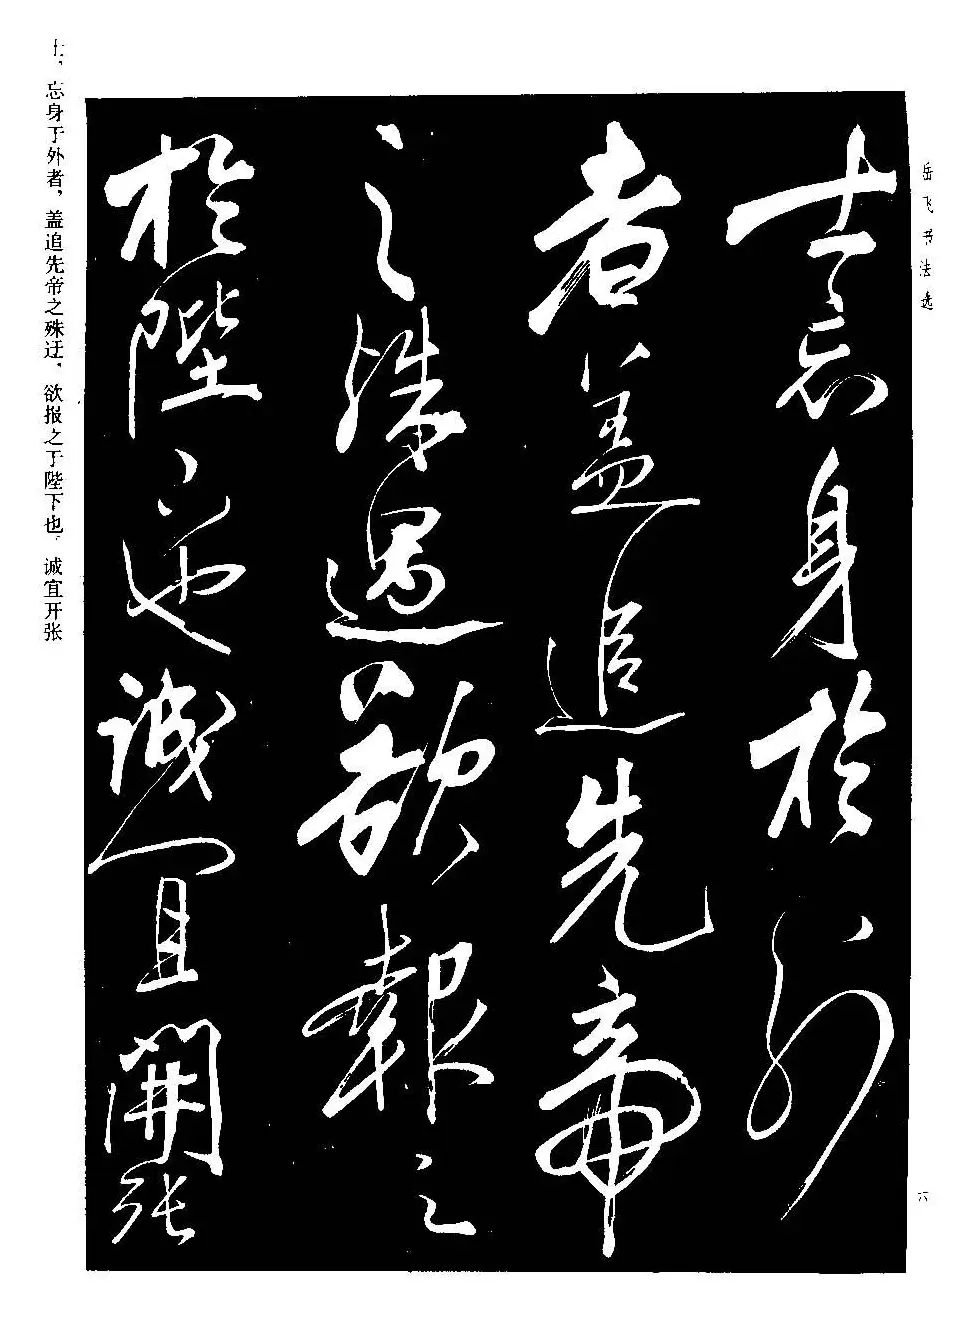 岳飞书法选
士忘身於外
者盖追先帝
之殊遇欲報之
於陛下也誠宜開張
士，忘身于外者，盖追先帝之殊迂，欲报之于陛下也，诚宜开张
六